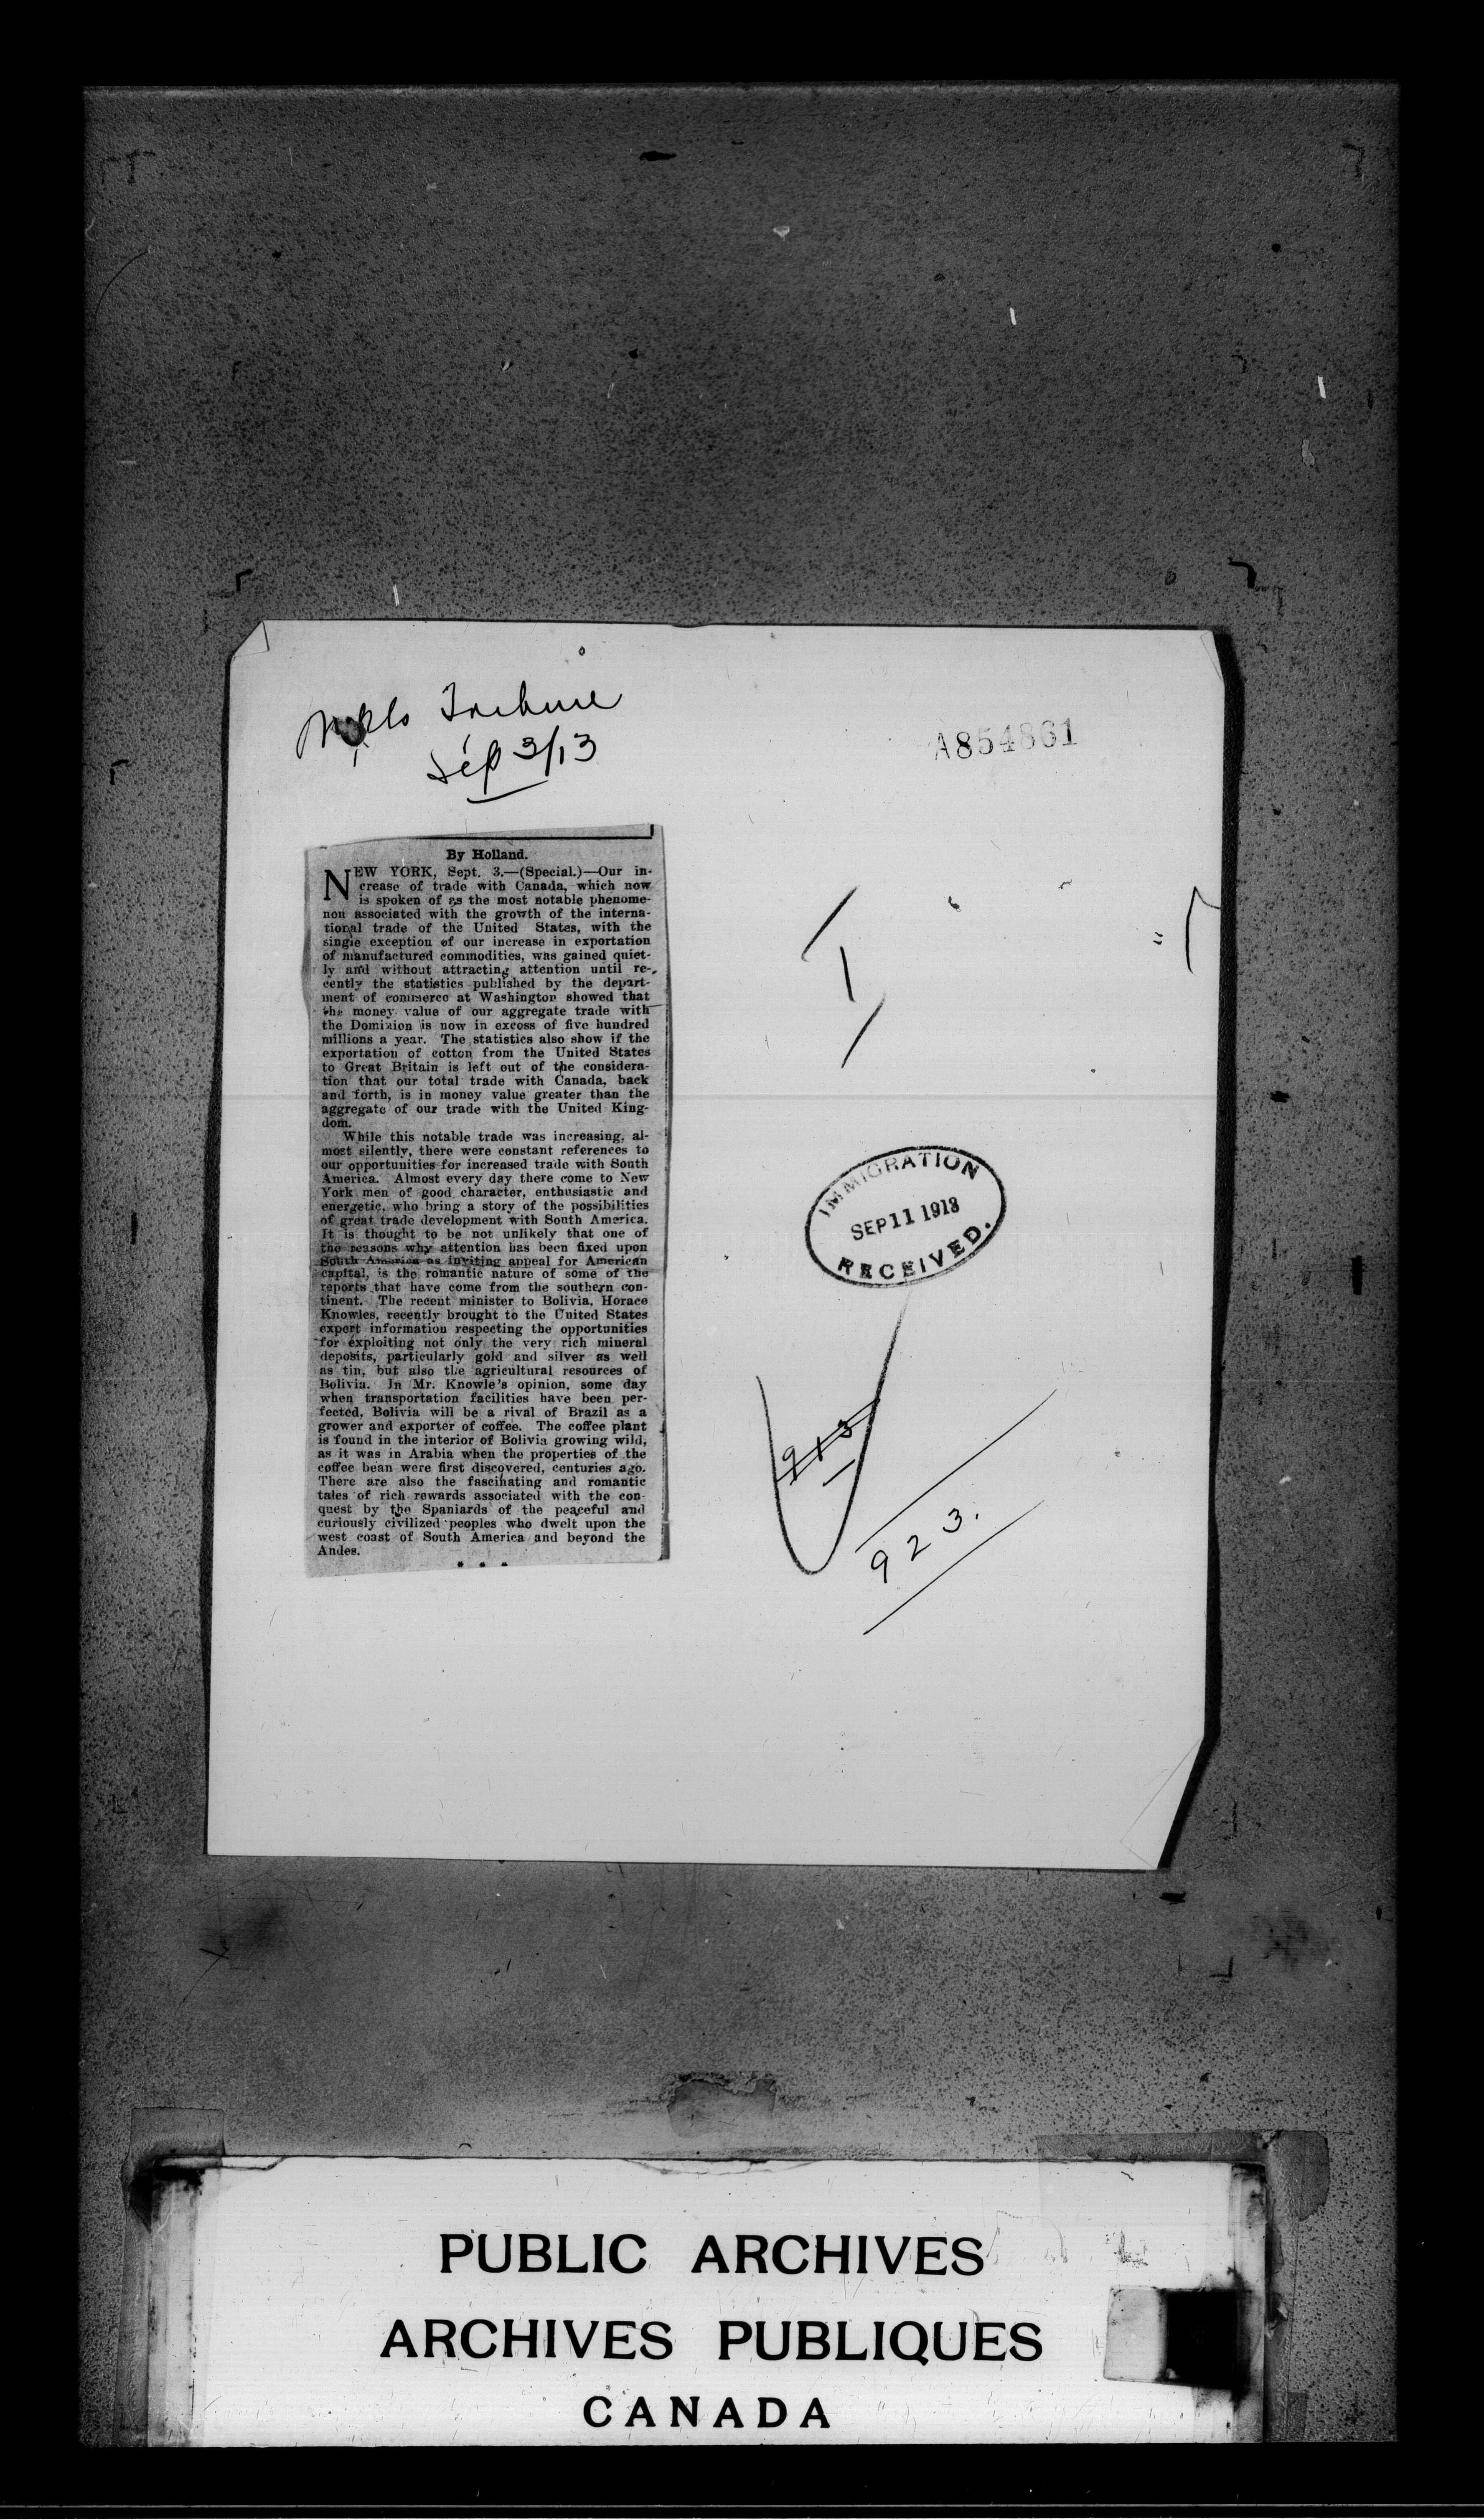 Mpls Tribune
Sep 3/13
A854861
By Holland.
NEW YORK, Sept. 3.—(Special.)—Our in-
crease of trade with Canada, which now
is spoken of as the most notable phenome-
non associated with the growth of the interna-
tional trade of the United States, with the
single exception of our increase in exportation
of manufactured commodities, was gained quiet-
ly and without attracting attention until re-
cently the statistics published by the depart-
ment of commerce at Washington showed that
the money value of our aggregate trade with
the Dominion is now in excess of five hundred
millions a year. The statistics also show if the
exportation of cotton from the United States
to Great Britain is left out of the considera-
tion that our total trade with Canada, back
and forth, is in money value greater than the
aggregate of our trade with the United King-
dom.
While this notable trade was increasing, al-
most silently, there were constant references to
our opportunities for increased trade with South
America. Almost every day there come to New
York men of good character, enthusiastic and
energetic, who bring a story of the possibilities
of great trade development with South America.
It is thought to be not unlikely that one of
the reasons why attention has been fixed upon
South America as inviting appeal for American
capital, is the romantic nature of some of the
reports that have come from the southern con-
tinent. The recent minister to Bolivia, Horace
Knowles, recently brought to the United States
expert information respecting the opportunities
for exploiting not only the very rich mineral
deposits, particularly gold and silver as well
as tin, but also the agricultural resources of
Bolivia. In Mr. Knowle's opinion, some day
when transportation facilities have been per-
fected, Bolivia will be a rival of Brazil as a
grower and exporter of coffee. The coffee plant
is found in the interior of Bolivia growing wild,
as it was in Arabia when the properties of the
coffee bean were first discovered, centuries ago.
There are also the fascinating and romantic
tales of rich rewards associated with the con-
quest by the Spaniards of the peaceful and
curiously civilized peoples who dwelt upon the
west coast of South America and beyond the
Andes.
* * *
IMMIGRATION
SEP 11 1913
RECEIVED.
913
923.
PUBLIC ARCHIVES
ARCHIVES PUBLIQUES
CANADA